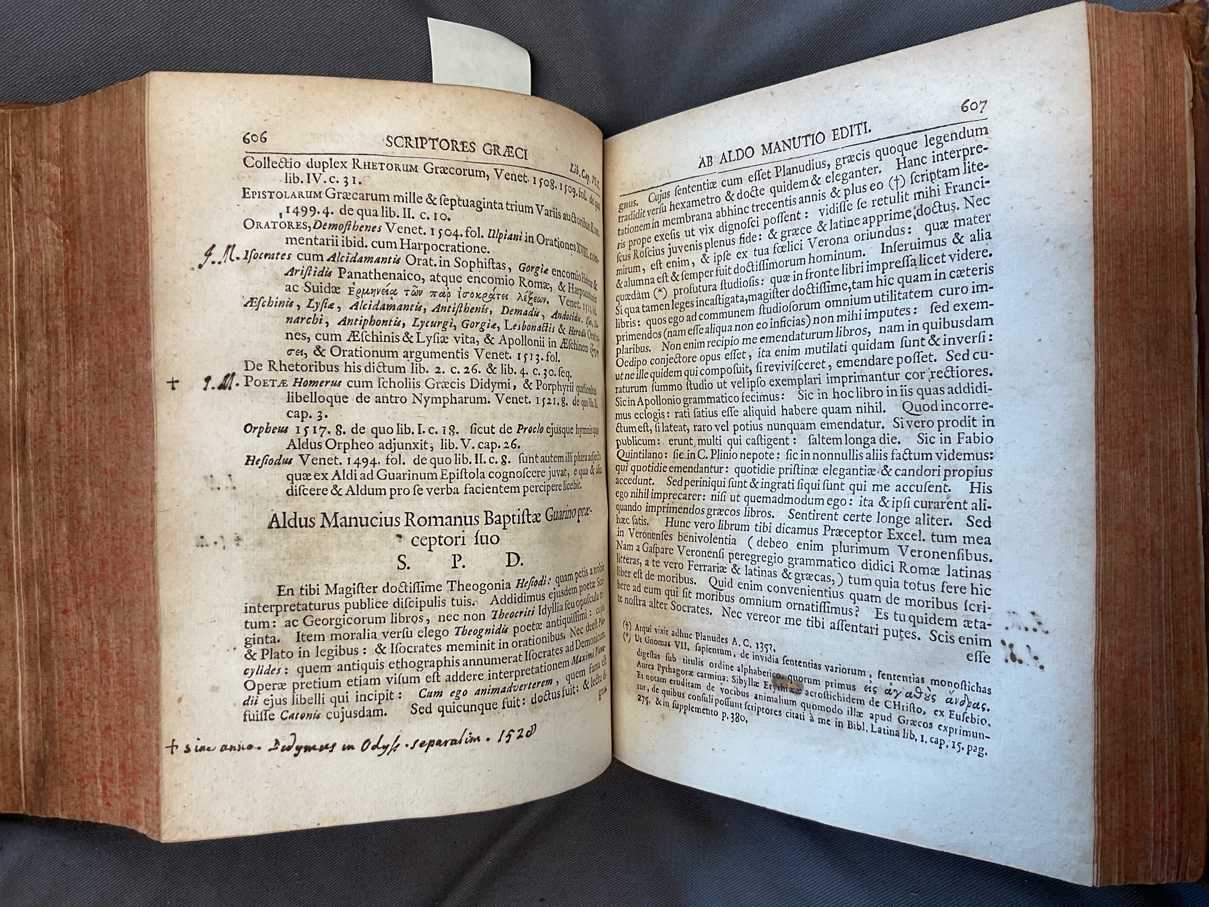 606
SCRIPTORES GRÆCI
Lib. Cap.
Collectio duplex RHETORUM Græcorum, Venet. 1508. 1509. fol. de qua
lib. IV. c. 31.
EPISTOLARUM Græcarum mille & septuaginta trium Variis auctoribus Rom.
1499. 4. de qua lib. II. c. 10.
ORATORES, Demosthenes Venet. 1504. fol. Ulpiani in Orationes XVIII. com-
mentarii ibid. cum Harpocratione.
J. M. Isocrates cum Alcidamantis Orat. in Sophistas, Gorgiæ encomio Helenæ &
Aristidis Panathenaico, atque encomio Romæ, & Harpocrationis
ac Suidæ ἑρμηνεία τῶν παρ ἰσοκράτει λέξεων. Venet.
Æschinis, Lysiæ, Alcidamantis, Antisthenis, Demadis, Andocidis,
narchi, Antiphontis, Lycurgi, Gorgiæ, Lesbonactis & Herodis Oratio-
nes, cum Æschinis & Lysiæ vita, & Apollonii in Æschinem
& Orationum argumentis Venet. 1513. fol.
De Rhetoribus his dictum lib. 2. c. 26. & lib. 4. c. 30. seq.
+ J. M. POETÆ Homerus cum scholiis Græcis Didymi, & Porphyrii quæstionibus
libelloque de antro Nympharum. Venet. 1521. 8. de quo lib. II.
cap. 3.
Orpheus 1517. 8. de quo lib. I. c. 18. sicut de Proclo ejusque hymnis quos
Aldus Orpheo adjunxit, lib. V. cap. 26.
Hesiodus Venet. 1494. fol. de quo lib. II. c. 8. sunt autem illi plura adjecta
quæ ex Aldi ad Guarinum Epistola cognoscere juvat, e qua & alia
discere & Aldum pro se verba facientem percipere licebit.
Aldus Manucius Romanus Baptistæ Guarino præ-
ceptori suo
S. P. D.
En tibi Magister doctissime Theogonia Hesiodi: quam petis a nobis
interpretaturus publice discipulis tuis. Addidimus ejusdem poetæ Scu-
tum: ac Georgicorum libros, nec non Theocriti Idyllia seu opuscula tri-
ginta. Item moralia versu elego Theognidis poetæ antiquissimi: cujus
& Plato in legibus: & Isocrates meminit in orationibus. Nec deest Pho-
cylides: quem antiquis ethographis annumerat Isocrates ad Demonicum.
Operæ pretium etiam visum est addere interpretationem Maximi Planu-
dii ejus libelli qui incipit: Cum ego animadverterem, quem fama est
fuisse Catonis cujusdam. Sed quicunque fuit: doctus fuit: & lectu di-
gnus
+ sine anno. Didymus in Odyss. separatim. 1528
607
AB ALDO MANUTIO EDITI.
gnus. Cujus sententiæ cum esset Planudius, græcis quoque legendum
tradidit versu hexametro & docte quidem & eleganter. Hanc interpre-
tationem in membrana abhinc trecentis annis & plus eo (†) scriptam lite-
ris prope exesis ut vix dignosci possent: vidisse se retulit mihi Franci-
scus Roscius juvenis plenus fide: & græce & latine apprime doctus. Nec
mirum, est enim, & ipse ex tua fœlici Verona oriundus: quæ mater
& alumna est & semper fuit doctissimorum hominum. Inseruimus & alia
quædam (*) profutura studiosis: quæ in fronte libri impressa licet videre.
Si qua tamen leges incastigata, magister doctissime, tam hic quam in cæteris
libris: quos ego ad communem studiosorum omnium utilitatem curo im-
primendos (nam esse aliqua non eo inficias) non mihi imputes: sed exem-
plaribus. Non enim recipio me emendaturum libros, nam in quibusdam
Oedipo conjectore opus esset, ita enim mutilati quidam sunt & inversi:
ut ne ille quidem qui composuit, si revivisceret, emendare posset. Sed cu-
raturum summo studio ut vel ipso exemplari imprimantur correctiores.
Sic in Apollonio grammatico fecimus: Sic in hoc libro in iis quas addidi-
mus eclogis: rati satius esse aliquid habere quam nihil. Quod incorre-
ctum est, si lateat, raro vel potius nunquam emendatur. Si vero prodit in
publicum: erunt multi qui castigent: saltem longa die. Sic in Fabio
Quintilano: sic in C. Plinio nepote: sic in nonnullis aliis factum videmus:
qui quotidie emendantur: quotidie pristinæ elegantiæ & candori propius
accedunt. Sed periniqui sunt & ingrati siqui sunt qui me accusent. His
ego nihil imprecarer: nisi ut quemadmodum ego: ita & ipsi curarent ali-
quando imprimendos græcos libros. Sentirent certe longe aliter. Sed
hæc satis. Hunc vero librum tibi dicamus Præceptor Excel. tum mea
in Veronenses benivolentia (debeo enim plurimum Veronensibus.
Nam a Gaspare Veronensi peregregio grammatico didici Romæ latinas
litteras, a te vero Ferrariæ & latinas & græcas,) tum quia totus fere hic
liber est de moribus. Quid enim convenientius quam de moribus scri-
bere ad eum qui sit moribus omnium ornatissimus? Es tu quidem æta-
te nostra alter Socrates. Nec vereor me tibi assentari putes. Scis enim
esse
(†) Atqui vixit adhuc Planudes A. C. 1357.
(*) Ut Gnomas VII. sapientum, de invidia sententias variorum, sententias monostichas
digestas sub titulis ordine alphabetico, quorum primus εἰς ἀγαθοὺς ἄνδρας.
Aurea Pythagoræ carmina: Sibyllæ Erythrææ acrostichidem de CHristo, ex Eusebio.
Et notam eruditam de vocibus animalium quomodo illæ apud Græcos exprimun-
tur, de quibus consuli possunt scriptores citati à me in Bibl. Latina lib, 1. cap, 15. pag.
275. & in supplemento p. 380,